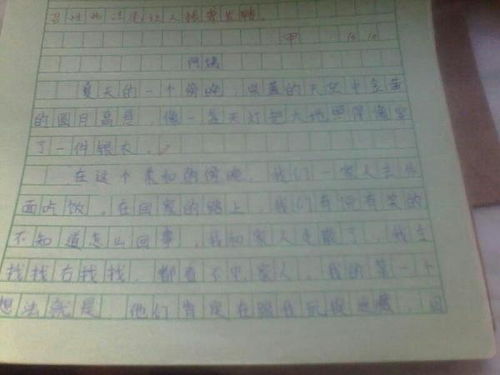 甲
夏天的一个傍晚，蓝的天空中金黄
的圆月高悬，像一盏天灯把大地照得像穿
了一件银衣。
在这个柔和的傍晚，我们一家人去外
面吃饭，在回家的路上，我们有说有笑的
不知道怎么回事，我和家人走散了，我左
找找右找找，都看不见家人，我的第一个
想法就是 他们肯定在跟我玩捉迷藏，因